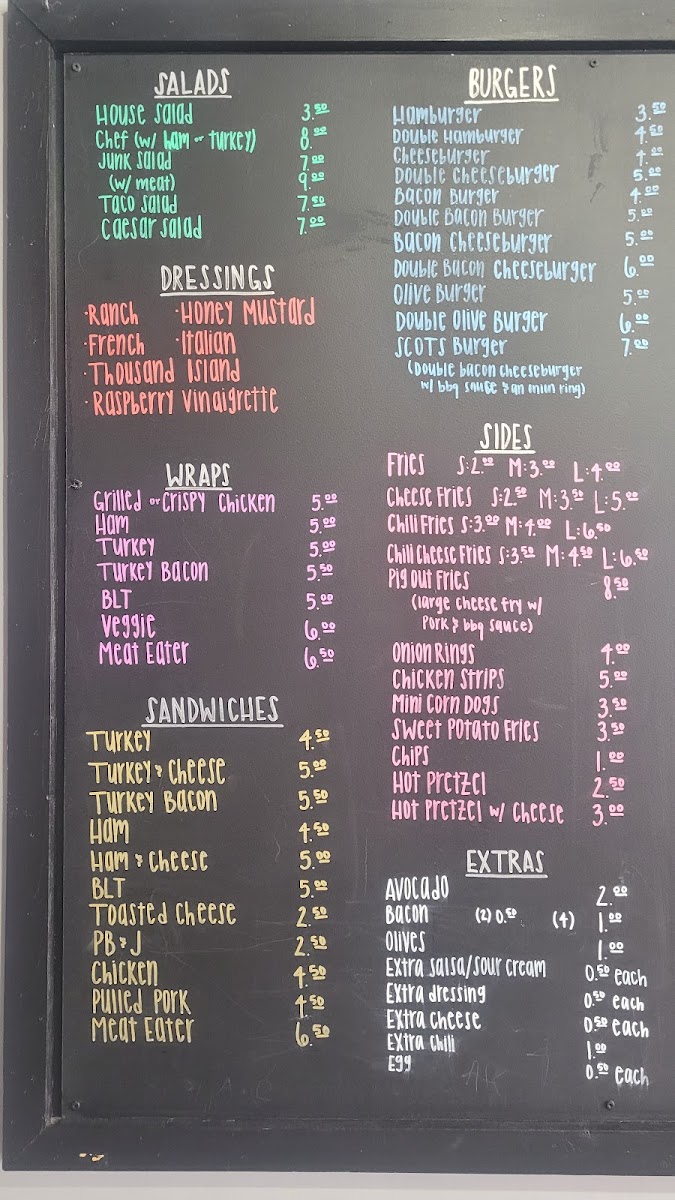 SALADS
House Salad 3.50
Chef (w/ ham or turkey) 8.00
Junk Salad 7.00
(w/ meat) 9.00
Taco Salad 7.50
Caesar Salad 7.00
DRESSINGS
·Ranch ·Honey Mustard
·French ·Italian
·Thousand Island
·Raspberry Vinaigrette
WRAPS
Grilled or Crispy Chicken 5.00
Ham 5.00
Turkey 5.00
Turkey Bacon 5.50
BLT 5.00
Veggie 6.00
Meat Eater 6.50
SANDWICHES
Turkey 4.50
Turkey & Cheese 5.00
Turkey Bacon 5.50
Ham 4.50
Ham & Cheese 5.00
BLT 5.00
Toasted Cheese 2.50
PB & J 2.50
Chicken 4.50
Pulled Pork 4.50
Meat Eater 6.50
BURGERS
Hamburger 3.50
Double Hamburger 4.50
Cheeseburger 4.00
Double Cheeseburger 5.00
Bacon Burger 4.00
Double Bacon Burger 5.00
Bacon Cheeseburger 5.00
Double Bacon Cheeseburger 6.00
Olive Burger 5.00
Double Olive Burger 6.00
SCOTS Burger 7.00
(Double bacon cheeseburger
w/ bbq sauce & an onion ring)
SIDES
Fries S:2.00 M:3.00 L:4.00
Cheese Fries S:2.50 M:3.50 L:5.00
Chili Fries S:3.00 M:4.00 L:6.50
Chili Cheese Fries S:3.50 M:4.50 L:6.50
Pig Out Fries 8.50
(large cheese fry w/
pork & bbq sauce)
Onion Rings 4.00
Chicken Strips 5.00
Mini Corn Dogs 3.50
Sweet Potato Fries 3.50
Chips 1.00
Hot Pretzel 2.50
Hot Pretzel w/ Cheese 3.00
EXTRAS
Avocado 2.00
Bacon (2) 0.50 (4) 1.00
Olives 1.00
Extra salsa/sour cream 0.50 each
Extra dressing 0.50 each
Extra cheese 0.50 each
Extra chili 1.00
Egg 0.50 each